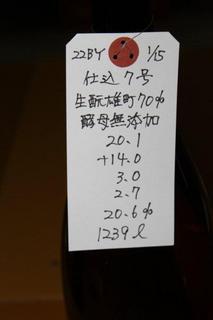 22BY 1/15
仕込7号
生酛雄町70%
酵母無添加
20.1
+14.0
3.0
2.7
20.6%
1239ℓ